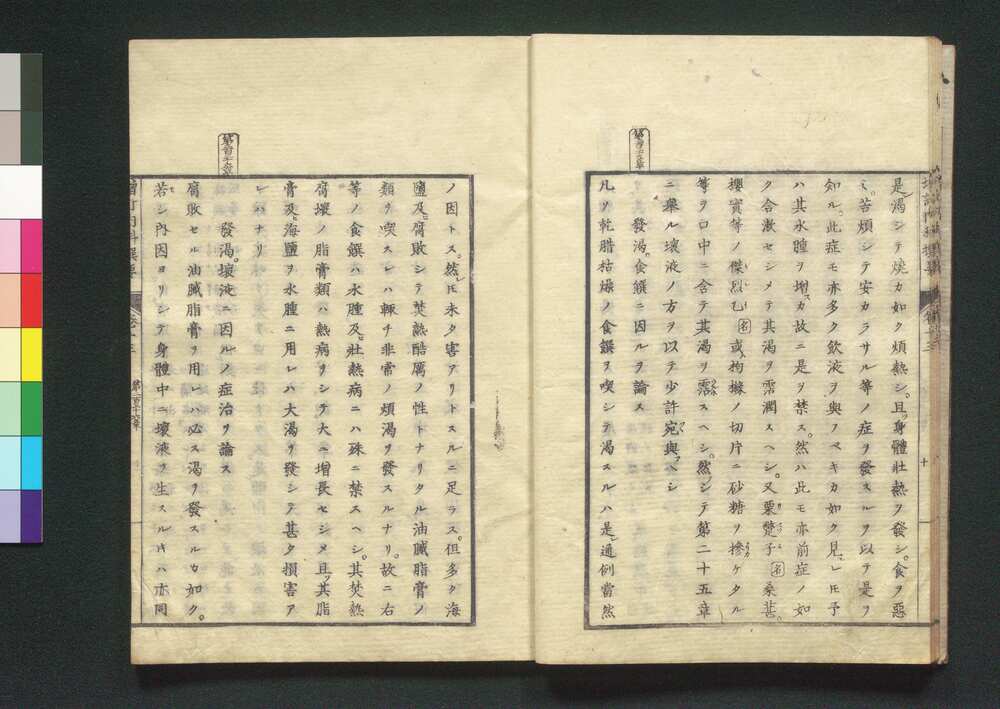 是渇シテ焼カ如ク煩熱シ。且ツ身體壯熱ヲ發シ。食ヲ惡
ミ。苦煩シテ安カラサル等ノ症ヲ發スルヲ以テ是ヲ
知ル。此症モ亦多ク飲液ヲ與ノベキカ如ク見レ𪜈予
ハ其水腫ヲ増スカ故ニ是ヲ禁ス。然ハ此モ亦前症ノ如
ク含漱セシメテ其渇ヲ霑潤スヘシ。又栗蹙子名桒葚。
櫻實等ノ傑烈乙名或ハ拘櫞ノ切片ニ砂糖ヲ摻ケタル
等ヲ口中ニ含テ其渇ヲ霑スヘシ。然シテ第二十五章
ニ擧ル壊液ノ方ヲ以テ少許宛與フヘシ
第百十五章
發渇。食饌ニ因ルヲ論ス
凡ソ乾腊枯燥ノ食饌ヲ喫シテ渇スルハ是レ通例當然
ノ因トス。然レ𪜈未タ害アリトスルニ足ラス。但多ク海
鹽及ヒ腐敗シテ焚熱酷厲ノ性トナリタル油膩脂膏ノ
類ヲ喫スレハ輙チ非常ノ煩渇ヲ發スルナリ。故ニ右
等ノ食饌ハ水腫及ヒ壯熱病ニハ殊ニ禁スヘシ。其焚熱
腐壊ノ脂膏類ハ熱病ヲシテ大ニ増長セシメ且ツ其脂
膏及ヒ海鹽ヲ水腫ニ用レハ大渇ヲ發シテ甚タ損害ア
レハナリ
第百十六章
發渇。壊液ニ因ルノ症治ヲ論ス
腐敗セル油膩脂膏ヲ用レハ必ス渇ヲ發スルカ如ク。
若シ内因ヨリシテ身體中ニ壊液ヲ生スル𪜈ハ亦同